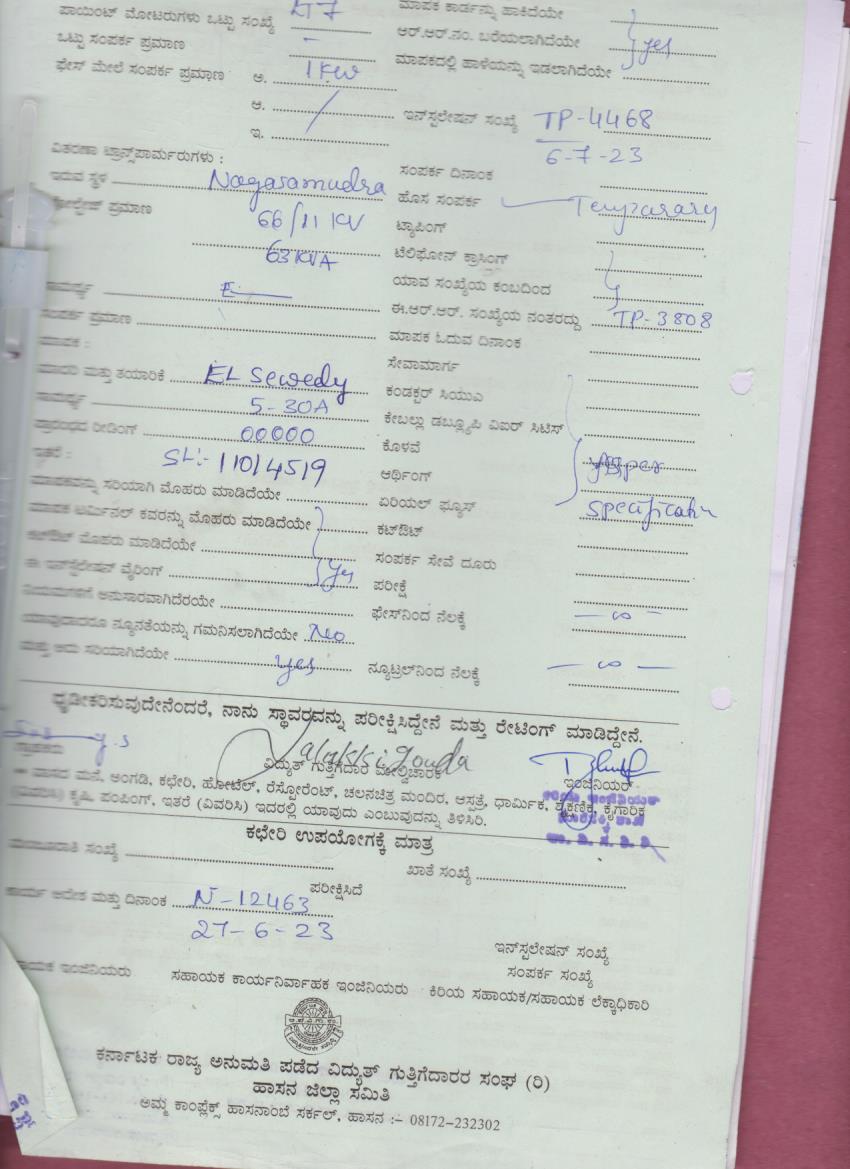 ಪಾಯಿಂಟ್ ಮೋಟರುಗಳು ಒಟ್ಟು ಸಂಖ್ಯೆ LT 7 ಮಾಪಕ ಕಾರ್ಡನ್ನು ಹಾಕಿದೆಯೇ
ಒಟ್ಟು ಸಂಪರ್ಕ ಪ್ರಮಾಣ - ಆರ್.ಆರ್.ನಂ. ಬರೆಯಲಾಗಿದೆಯೇ yes
ಫೇಸ್ ಮೇಲೆ ಸಂಪರ್ಕ ಪ್ರಮಾಣ ಅ. 1 KW ಮಾಪಕದಲ್ಲಿ ಹಾಳೆಯನ್ನು ಇಡಲಾಗಿದೆಯೇ
ಆ. ಇನ್‌ಸ್ಟಲೇಷನ್ ಸಂಖ್ಯೆ TP-4468
ಇ. 6-7-23
ವಿತರಣಾ ಟ್ರಾನ್ಸ್‌ಪಾರ್ಮರುಗಳು : ಸಂಪರ್ಕ ದಿನಾಂಕ
ಇರುವ ಸ್ಥಳ Nagasamudra ಹೊಸ ಸಂಪರ್ಕ Temparary
ವೋಲ್ಟೇಜ್ ಪ್ರಮಾಣ 66/11 KV ಟ್ಯಾಪಿಂಗ್
63 KVA ಟೆಲಿಫೋನ್ ಕ್ರಾಸಿಂಗ್
ಯಾವ ಸಂಖ್ಯೆಯ ಕಂಬದಿಂದ
ಸಾಮರ್ಥ್ಯ E ಈ.ಆರ್.ಆರ್. ಸಂಖ್ಯೆಯ ನಂತರದ್ದು TP-3808
ಸಂಪರ್ಕ ಪ್ರಮಾಣ ಮಾಪಕ ಓದುವ ದಿನಾಂಕ
ಮಾಪಕ : ಸೇವಾಮಾರ್ಗ
ಮಾದರಿ ಮತ್ತು ತಯಾರಿಕೆ EL Sewedy ಕಂಡಕ್ಟರ್ ಸಿಯುಎ
ಸಾಮರ್ಥ್ಯ 5-30A ಕೇಬಲ್ಲು ಡಬ್ಲ್ಯೂಪಿ ವಿಐಆರ್ ಸಿಟಿಸ್
ಪ್ರಾರಂಭದ ರೀಡಿಂಗ್ 00000 ಕೊಳವೆ
ಇತರೆ : SL:- 11014519 ಆರ್ಥಿಂಗ್
ಮಾಪಕವನ್ನು ಸರಿಯಾಗಿ ಮೊಹರು ಮಾಡಿದೆಯೇ ಏರಿಯಲ್ ಫ್ಯೂಸ್ specification
ಮಾಪಕ ಟರ್ಮಿನಲ್ ಕವರನ್ನು ಮೊಹರು ಮಾಡಿದೆಯೇ ಕಟ್‌ಔಟ್
ಕಟ್‌ಔಟ್ ಮೊಹರು ಮಾಡಿದೆಯೇ ಸಂಪರ್ಕ ಸೇವೆ ದೂರು
ಈ ಇನ್‌ಸ್ಟಲೇಷನ್ ವೈರಿಂಗ್ yes ಪರೀಕ್ಷೆ
ನಿಯಮಗಳಿಗೆ ಅನುಸಾರವಾಗಿದೆರಯೇ ಫೇಸ್‌ನಿಂದ ನೆಲಕ್ಕೆ — ∞ —
ಯಾವುದಾದರೂ ನ್ಯೂನತೆಯನ್ನು ಗಮನಿಸಲಾಗಿದೆಯೇ No
ಮತ್ತು ಅದು ಸರಿಯಾಗಿದೆಯೇ yes ನ್ಯೂಟ್ರಲ್‌ನಿಂದ ನೆಲಕ್ಕೆ — ∞ —
ಧೃಡೀಕರಿಸುವುದೇನೆಂದರೆ, ನಾನು ಸ್ಥಾವರವನ್ನು ಪರೀಕ್ಷಿಸಿದ್ದೇನೆ ಮತ್ತು ರೇಟಿಂಗ್ ಮಾಡಿದ್ದೇನೆ.
ಗ್ರಾಹಕರು ವಿದ್ಯುತ್ ಗುತ್ತಿಗೆದಾರ ಮೇಲ್ವಿಚಾರಕ ಇಂಜಿನಿಯರ್
ವಾಸದ ಮನೆ, ಅಂಗಡಿ, ಕಛೇರಿ, ಹೋಟೆಲ್, ರೆಸ್ಟೋರೆಂಟ್, ಚಲನಚಿತ್ರ ಮಂದಿರ, ಆಸ್ಪತ್ರೆ, ಧಾರ್ಮಿಕ, ಶೈಕ್ಷಣಿಕ, ಕೈಗಾರಿಕ
(ವಿವರಿಸಿ) ಕೃಷಿ, ಪಂಪಿಂಗ್, ಇತರೆ (ವಿವರಿಸಿ) ಇದರಲ್ಲಿ ಯಾವುದು ಎಂಬುವುದನ್ನು ತಿಳಿಸಿರಿ.
ಕಛೇರಿ ಉಪಯೋಗಕ್ಕೆ ಮಾತ್ರ
ಮಂಜೂರಾತಿ ಸಂಖ್ಯೆ ಖಾತೆ ಸಂಖ್ಯೆ
ಪರೀಕ್ಷಿಸಿದೆ
ಕಾರ್ಯ ಆದೇಶ ಮತ್ತು ದಿನಾಂಕ N-12463
27-6-23
ಇನ್‌ಸ್ಟಲೇಷನ್ ಸಂಖ್ಯೆ
ಸಂಪರ್ಕ ಸಂಖ್ಯೆ
ಸಹಾಯಕ ಇಂಜಿನಿಯರು ಸಹಾಯಕ ಕಾರ್ಯನಿರ್ವಾಹಕ ಇಂಜಿನಿಯರು ಕಿರಿಯ ಸಹಾಯಕ/ಸಹಾಯಕ ಲೆಕ್ಕಾಧಿಕಾರಿ
ಕರ್ನಾಟಕ ರಾಜ್ಯ ಅನುಮತಿ ಪಡೆದ ವಿದ್ಯುತ್ ಗುತ್ತಿಗೆದಾರರ ಸಂಘ (ರಿ)
ಹಾಸನ ಜಿಲ್ಲಾ ಸಮಿತಿ
ಅಮ್ಮ ಕಾಂಪ್ಲೆಕ್ಸ್ ಹಾಸನಾಂಬೆ ಸರ್ಕಲ್, ಹಾಸನ :– 08172-232302